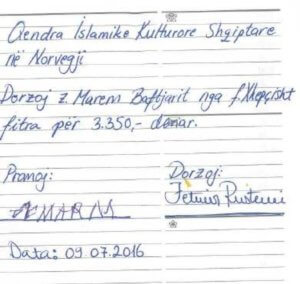 Qendra Islamike Kulturore Shqiptare
në Norvegji
Dorzoj z. Marem Baftjarit nga f. Xhepçisht
fitra për 3.350,- denar.
Pranoj: Dorzoj:
MARM Fetmir Rustemi
Data: 09.07.2016